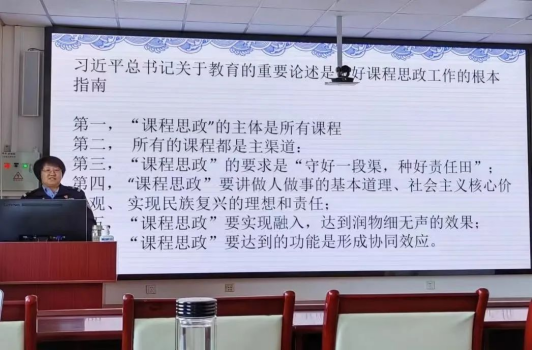 习近平总书记关于教育的重要论述是 好课程思政工作的根本
指南
第一，“课程思政”的主体是所有课程
第二， 所有的课程都是主渠道；
第三，“课程思政”的要求是“守好一段渠，种好责任田”；
第四，“课程思政”要讲做人做事的基本道理、社会主义核心价
观、实现民族复兴的理想和责任；
“课程思政”要实现融入，达到润物细无声的效果；
“课程思政”要达到的功能是形成协同效应。